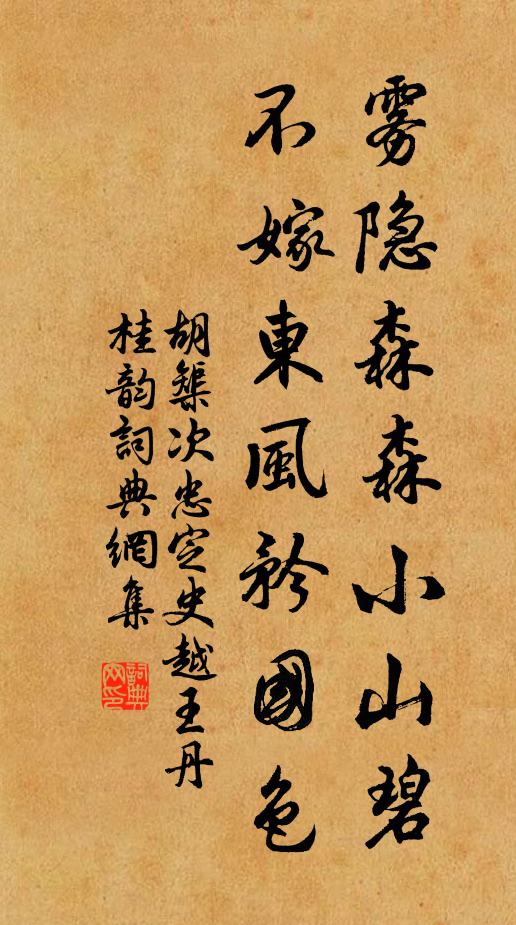 雾隐森森小山碧
不嫁東風矜國色
胡榘次忠定史越王丹
桂韵詞典網集
詞典网印